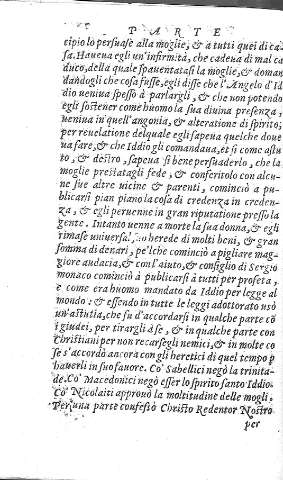 PARTE
cipio lo persuase alla moglie, & a tutti quei di ca-
sa. Haueua egli un'infirmità, che cadeua di mal ca
duco, della quale spauentatasi la moglie, & doman
dandogli che cosa fusse, egli disse che l'Angelo d'Id
dio ueniua spesso à parlargli, & che non potendo
egli sostener come huomo la sua diuina presenza,
ueniua in quell'angonia, & alteratione di spirito;
per reuelatione del quale egli sapeua quel che doue
ua fare, & che Iddio gli comandaua, et si come astu
to, & destro, sapeua sì bene persuaderlo, che la
moglie prestatagli fede, & conferitolo con alcu-
ne sue altre uicine & parenti, cominciò a pu-
blicarsi pian piano la cosa di credenza in creden-
za, & egli peruenne in gran riputatione presso la
gente. In tanto uenne a morte la sua donna, & egli
rimase uniuersal herede di molti beni, & gran
somma di denari, pe'l che cominciò a pigliare mag-
giore audacia, & con l'aiuto, & consiglio di Sergio
monaco cominciò à publicarsi à tutti per profeta,
e come era huomo mandato da Iddio per legge al
mondo: & essendo in tutte le leggi adottorato usò
un'astutia, che fu d'accordarsi in qualche parte cō
i giudei, per tirargli à se, & in qualche parte con
Christiani per non recarsegli nemici, & in molte co
se s'accordò ancora con gli heretici di quel tempo p
hauerli in suo fauore. Co' Sabellici negò la trinita-
de. Co' Macedonici negò esser lo spirito santo Iddio.
Co' Nicolaiti approuò la moltitudine delle mogli.
Per una parte confessò Christo Redentor Nostro
per